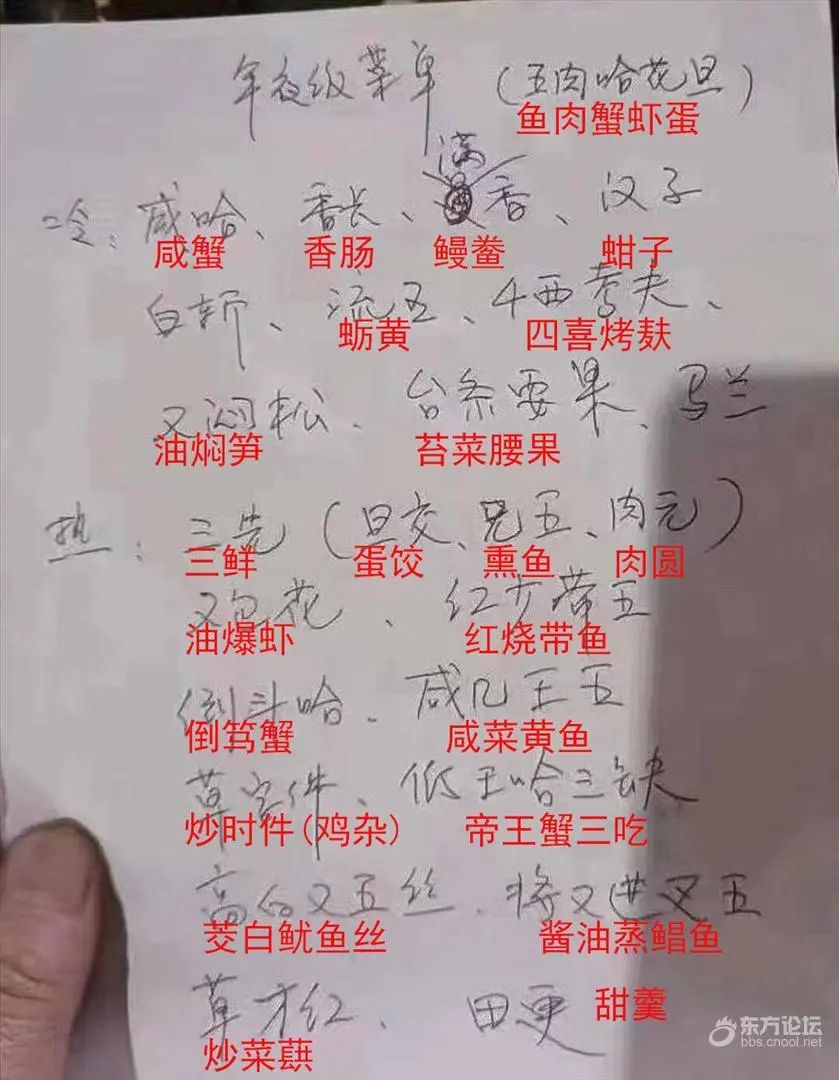 年夜级菜单 (五肉哈花旦)
鱼肉蟹虾蛋
满
冷: 咸哈、香长、香、汉子
咸蟹 香肠 鳗鲞 蚶子
白斩、流王、4西考夫、
蛎黄 四喜烤麸
又闷松、台条要果、马兰
油焖笋 苔菜腰果
热: 三先 (旦交、兄五、肉元)
三鲜 蛋饺 熏鱼 肉圆
又包花、红少带五
油爆虾 红烧带鱼
倒斗哈、咸几王五
倒笃蟹 咸菜黄鱼
草客件、低王哈三缺
炒时件(鸡杂) 帝王蟹三吃
高白又五丝、将又进叉五
茭白鱿鱼丝 酱油蒸鲳鱼
草才红、田更 甜羹
炒菜蕻
东方论坛
bbs.cnool.net